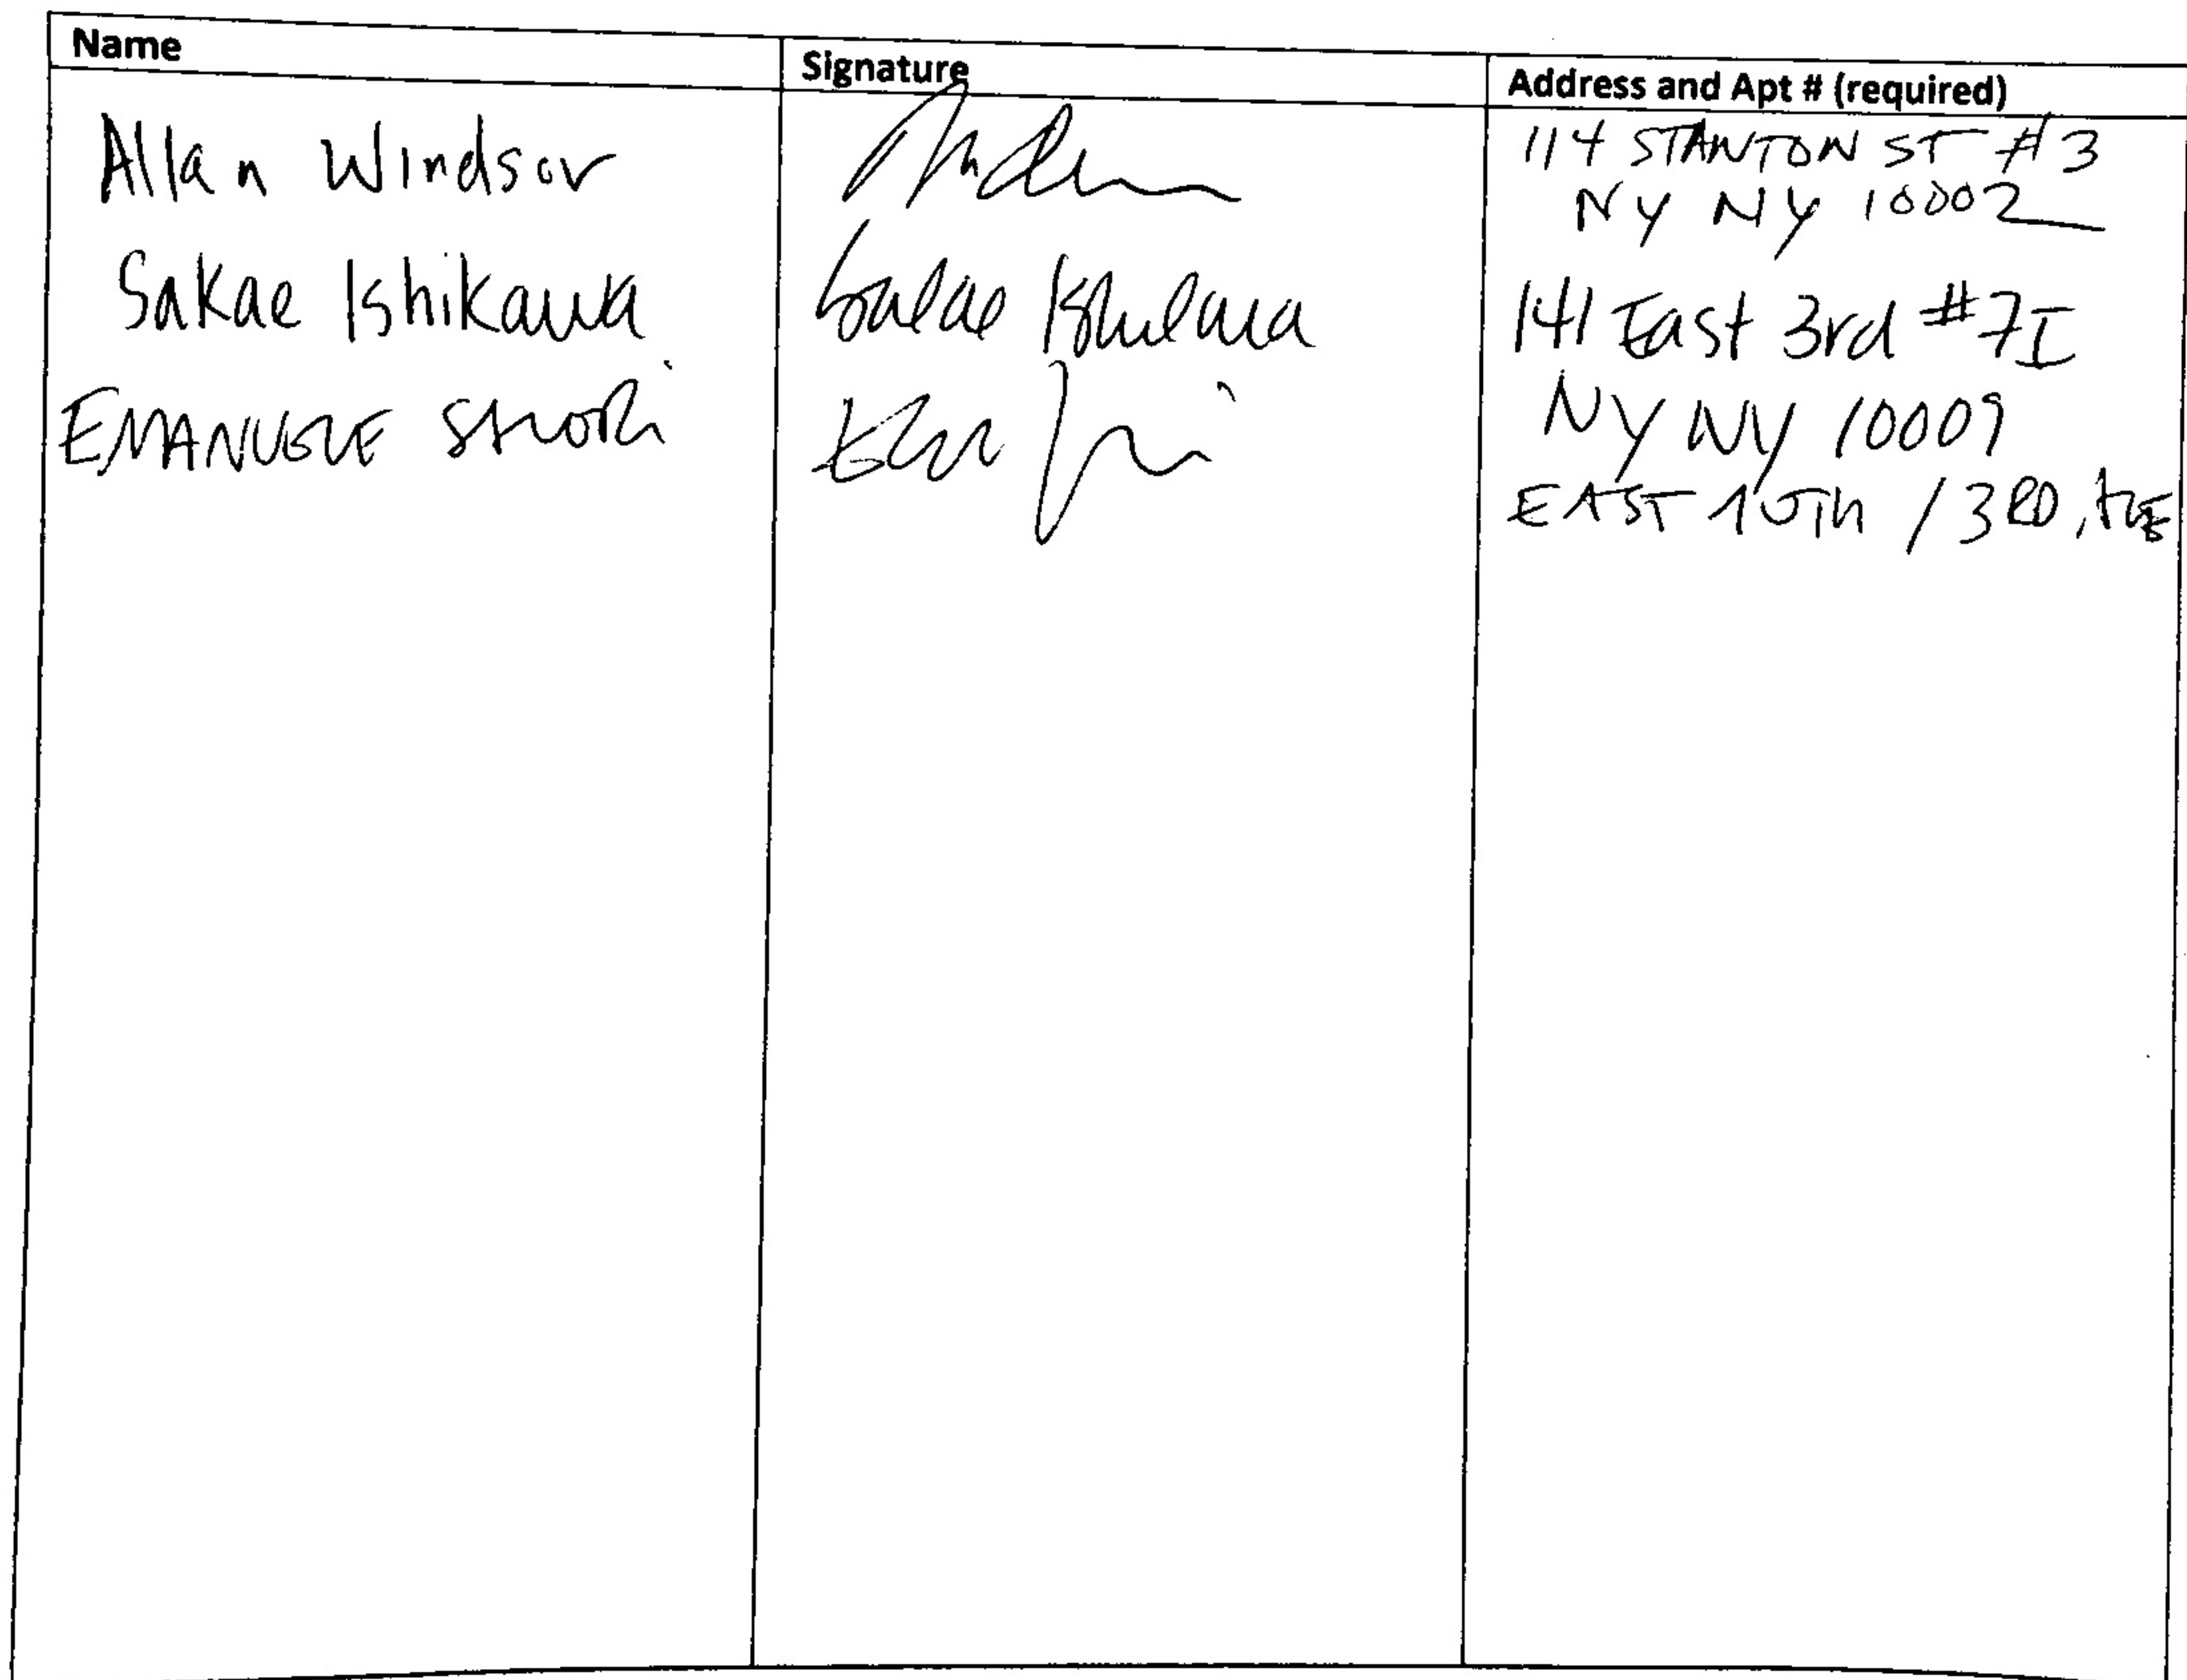 Name Signature Address and Apt # (required)
Allan Windsor 114 STANTON ST #3
NY NY 10002
Sakae Ishikawa Sakae Ishikawa 141 East 3rd #7I
EMANUELE NY NY 10009
EAST 10Th / 3RD AVE